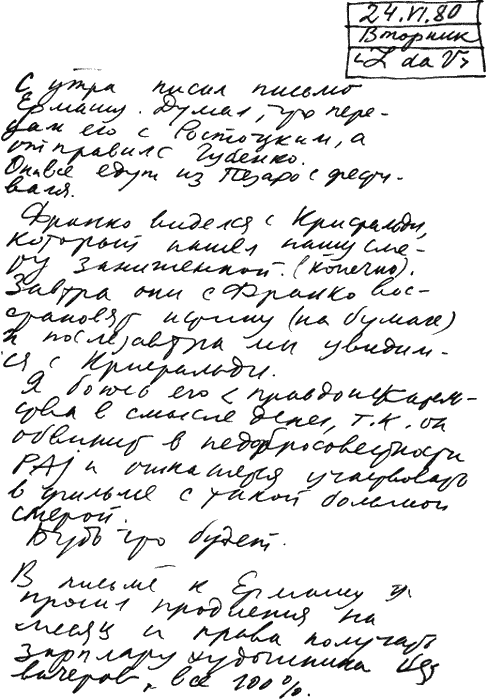 24.VI.80
Вторник
С утра писал письмо
Ермашу. Думал, что пере-
дам его с Ростоцким, а
отправил с Губенко.
Они все едут из Пезаро с фести-
валя.
Франко виделся с Кристальди,
который нашел нашу сме-
ту заниженной. (Конечно).
Завтра они с Франко вос-
становят истину (на бумаге)
и послезавтра мы увидим-
ся с Кристальди.
Я боюсь его
в смысле денег, т.к. он
обвинит в недобросовестности
РАJ и откажется участвовать
в фильме с такой большой
сметой.
Будь что будет.
В письме к Ермашу я
просил продления на
месяц и права получать
зарплату художника без
вычетов, все 100%.